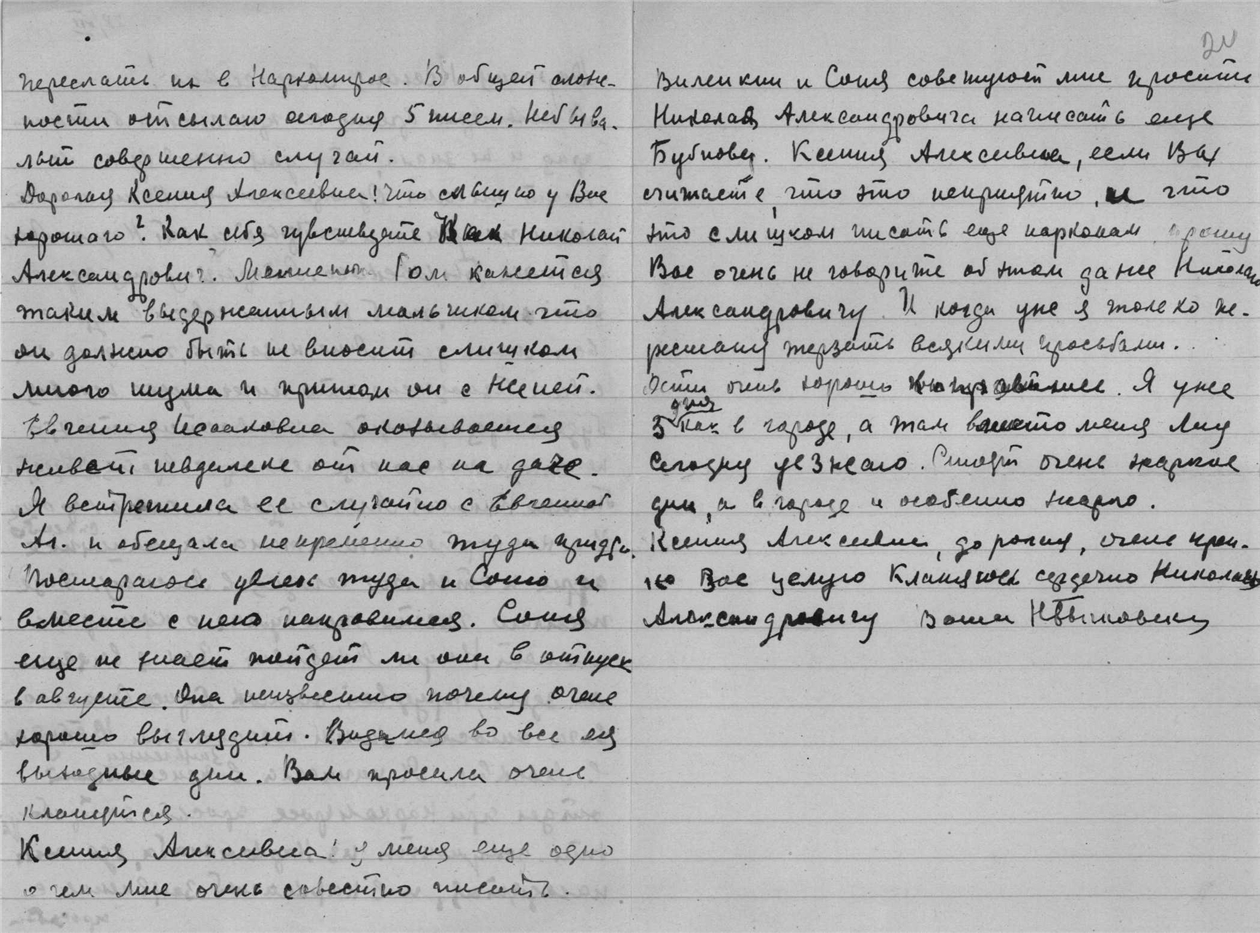 переслать их в Наркомпрос. В общей слож-
ности отсылаю сегодня 5 писем. Небыва-
лый совершенно случай.
Дорогая Ксения Алексеевна! Что слышно у Вас
хорошаго? Как себя чувствуете Как Николай
Александрович. Гоги кажется
таким выдержанным мальчиком что
он должно быть не вносит слишком
много шума и притом он с Женей.
Евгения Исааковна оказывается
живет невдалеке от нас на даче.
Я встретила ее случайно с Евгенией
Ал. и обещала непременно туда придти.
Постараюсь увлечь туда и Соню и
вместе с нею направимся. Соня
еще не знает пойдет ли она в отпуск
в августе. Она неизвестно почему очень
хорошо выглядит. Видимся во все ея
выходные дни. Вам просила очень
кланяться.
Ксения Алексеевна! у меня еще одно
о чем мне очень совестно писать.
20
Виленкин и Соня советуют мне просить
Николая Александровича написать еще
Бубнову. Ксения Алексеевна, если Вы
считаете, что это неприятно, и что
это слишком писать еще наркомам, прошу
Вас очень не говорите об этом даже Николаю
Александровичу. И когда уже я только пе-
рестану терзать всякими просьбами.
очень хорошо Я уже
3 дня как в городе, а там вместо меня Яну
Сегодня уезжаю. Стоят очень жаркие
дни, а в городе и особенно жарко.
Ксения Алексеевна, дорогая, очень креп-
ко Вас целую Кланяюсь сердечно Николаю
Александровичу Ваша